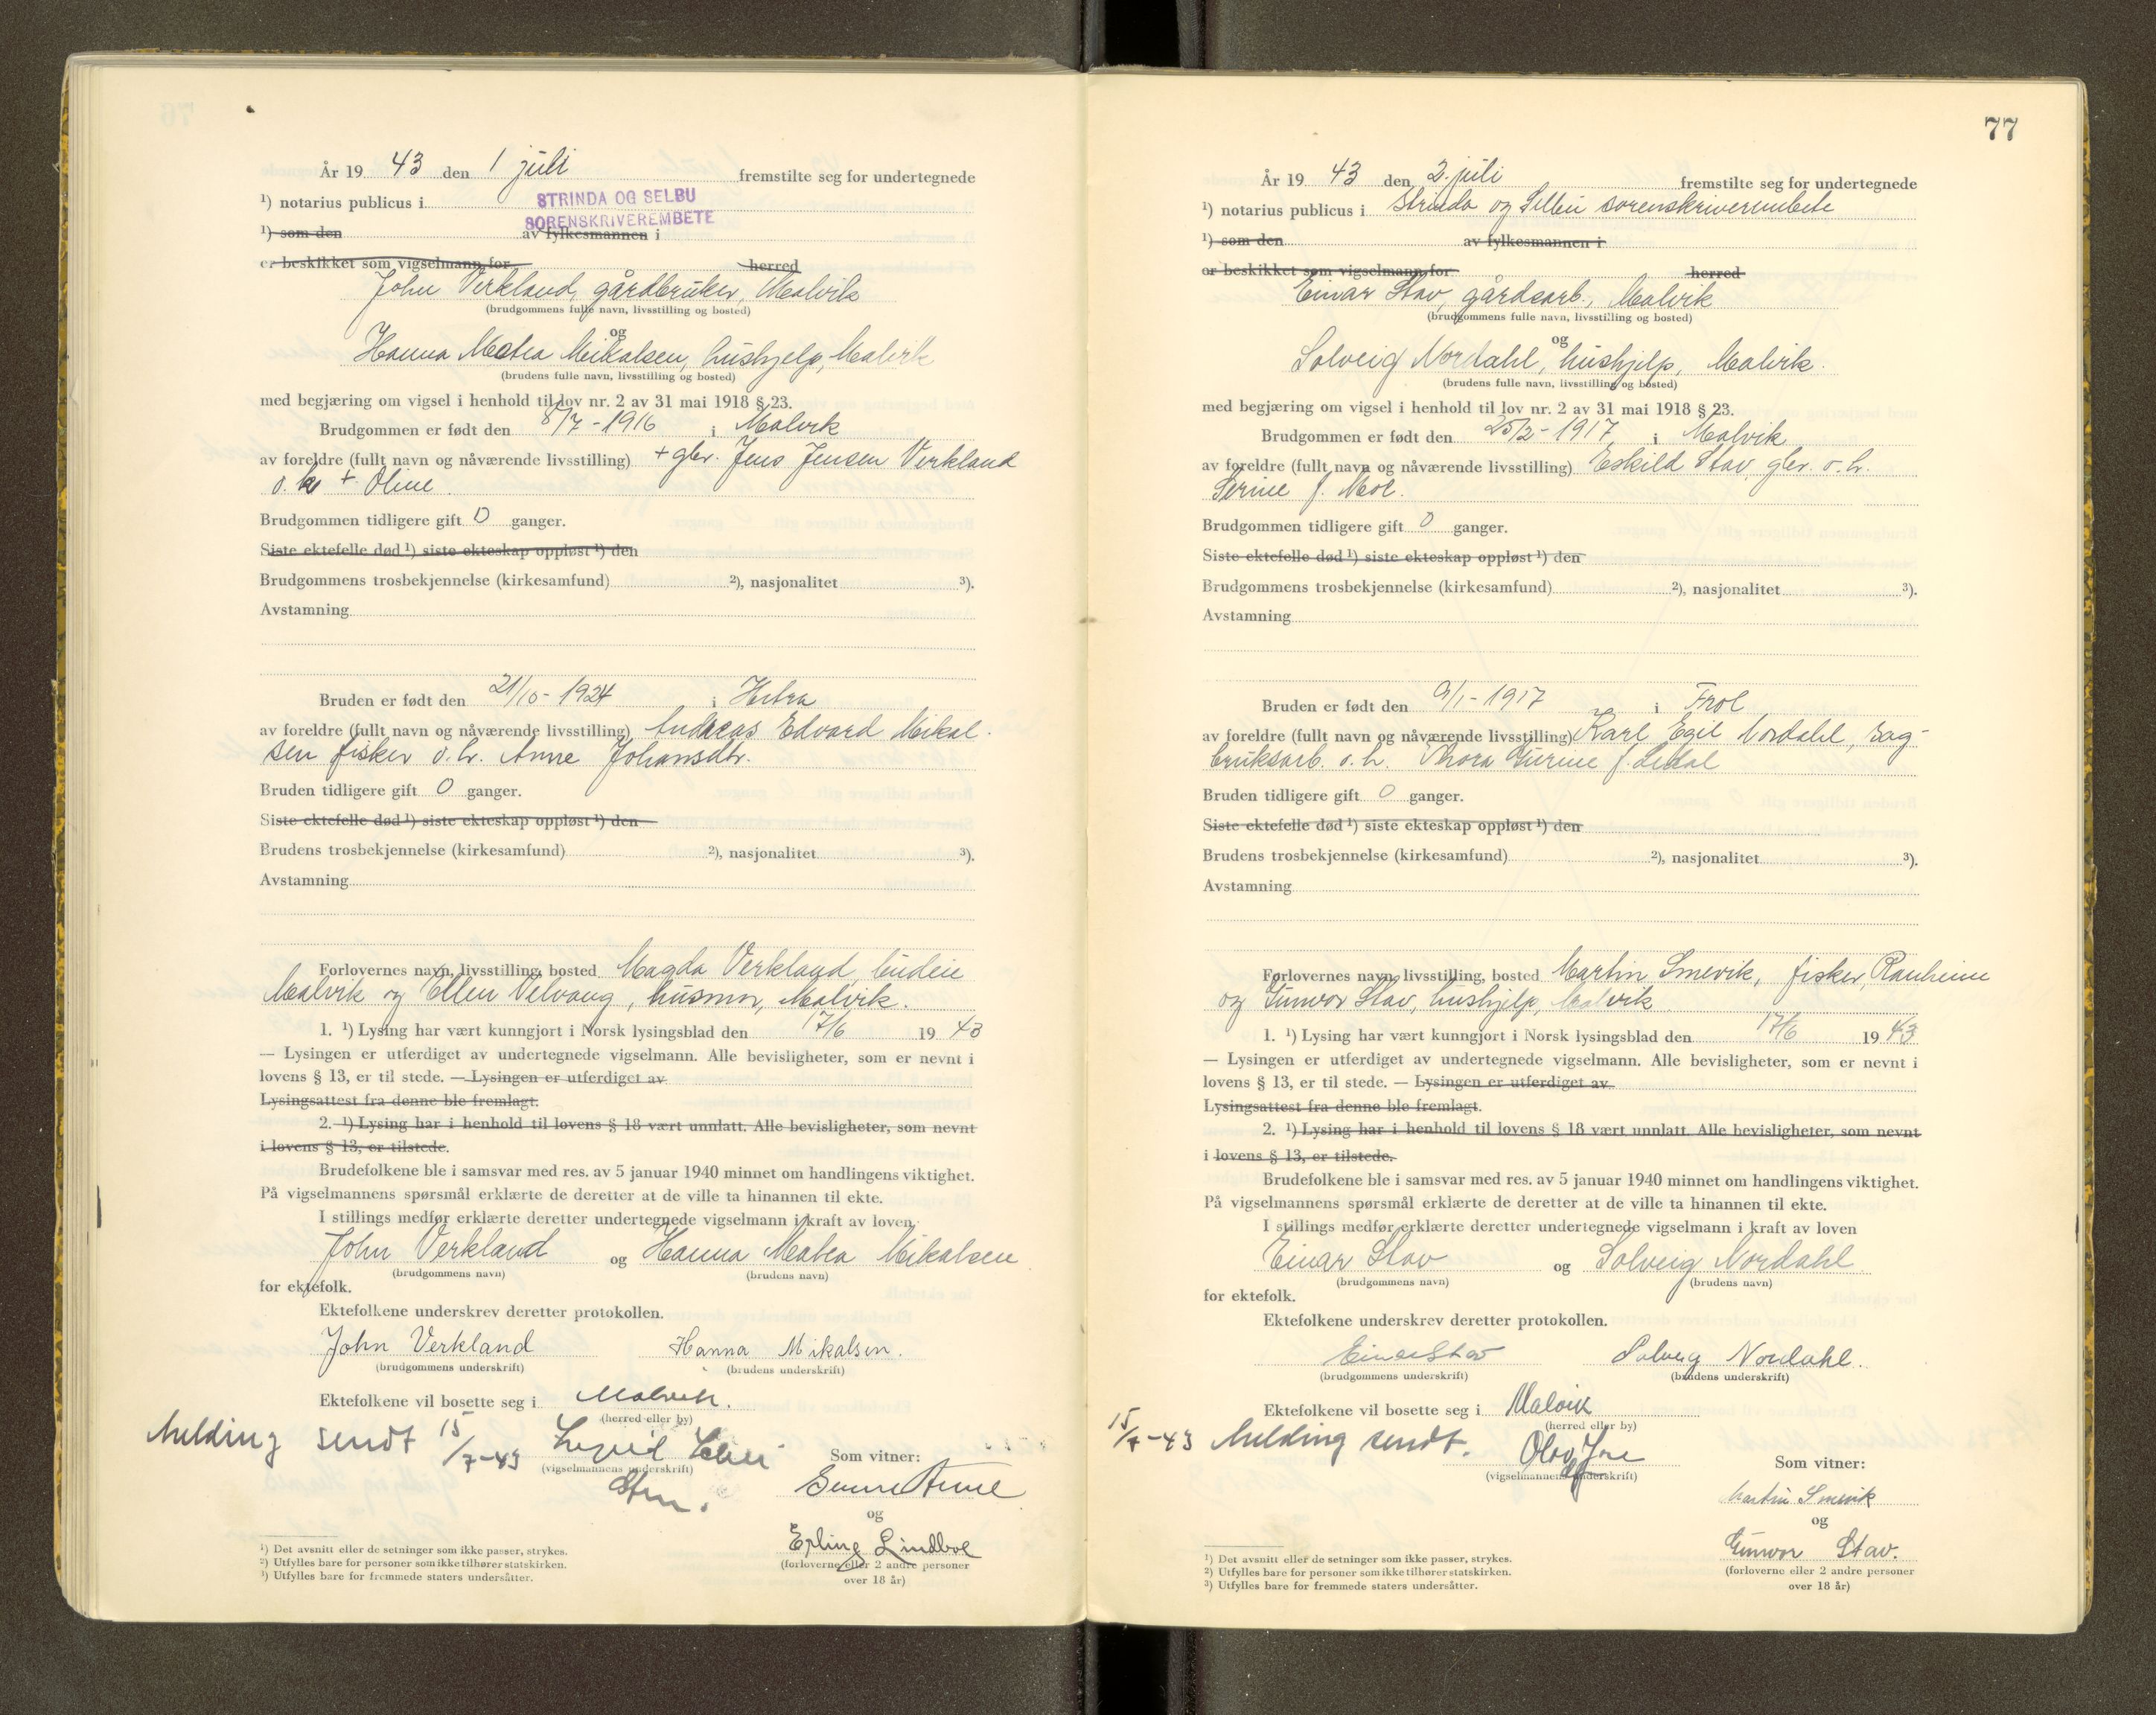 År 19 43 den 1 juli fremstilte seg for undertegnede
¹) notarius publicus i STRINDA OG SELBU
SORENSKRIVEREMBETE
¹) som den av fylkesmannen i
er beskikket som vigselmann for herred
John Verkland, gårdbruker, Malvik
(brudgommens fulle navn, livsstilling og bosted)
og
Hanna Matea Mikalsen, hushjelp, Malvik
(brudens fulle navn, livsstilling og bosted)
med begjæring om vigsel i henhold til lov nr. 2 av 31 mai 1918 § 23.
Brudgommen er født den 8/7 - 1916 i Malvik
av foreldre (fullt navn og nåværende livsstilling) + gbr. Jens Jensen Verkland
o. h. + Oline.
Brudgommen tidligere gift 0 ganger.
Siste ektefelle død ¹) siste ekteskap oppløst ¹) den
Brudgommens trosbekjennelse (kirkesamfund) ²), nasjonalitet ³).
Avstamning
Bruden er født den 21/10 - 1924 i Hitra
av foreldre (fullt navn og nåværende livsstilling) Andreas Edvard Mikal-
sen fisker o. h. Anne Johansdtr.
Bruden tidligere gift 0 ganger.
Siste ektefelle død ¹) siste ekteskap oppløst ¹) den
Brudens trosbekjennelse (kirkesamfund) ²), nasjonalitet ³).
Avstamning
Forlovernes navn, livsstilling, bosted Magda Verkland, budeie
Malvik og Ellen Velvang, husmor, Malvik.
1. ¹) Lysing har vært kunngjort i Norsk lysingsblad den 17/6 19 43
— Lysingen er utferdiget av undertegnede vigselmann. Alle bevisligheter, som er nevnt i
lovens § 13, er til stede. — Lysingen er utferdiget av
Lysingsattest fra denne ble fremlagt.
2. ¹) Lysing har i henhold til lovens § 18 vært unnlatt. Alle bevisligheter, som nevnt
i lovens § 13, er tilstede.
Brudefolkene ble i samsvar med res. av 5 januar 1940 minnet om handlingens viktighet.
På vigselmannens spørsmål erklærte de deretter at de ville ta hinannen til ekte.
I stillings medfør erklærte deretter undertegnede vigselmann i kraft av loven
John Verkland og Hanna Matea Mikalsen
(brudgommens navn) (brudens navn)
for ektefolk.
Ektefolkene underskrev deretter protokollen.
John Verkland Hanna Mikalsen.
(brudgommens underskrift) (brudens underskrift)
Ektefolkene vil bosette seg i Malvik.
(herred eller by)
Melding sendt 15/7-43
(vigselmannens underskrift)
Som vitner:
og
Erling Lindboe
(forloverne eller 2 andre personer
over 18 år)
¹) Det avsnitt eller de setninger som ikke passer, strykes.
²) Utfylles bare for personer som ikke tilhører statskirken.
³) Utfylles bare for fremmede staters undersåtter.
77
År 19 43 den 2. juli fremstilte seg for undertegnede
¹) notarius publicus i Strinda og Selbu sorenskriverembete
¹) som den av fylkesmannen i
er beskikket som vigselmann for herred
Einar Stav, gårdsarb., Malvik
(brudgommens fulle navn, livsstilling og bosted)
og
Solveig Nordahl, hushjelp, Malvik.
(brudens fulle navn, livsstilling og bosted)
med begjæring om vigsel i henhold til lov nr. 2 av 31 mai 1918 § 23.
Brudgommen er født den 25/2 - 1917, i Malvik
av foreldre (fullt navn og nåværende livsstilling) Eskild Stav, gbr. o. h.
Serine f. Moe.
Brudgommen tidligere gift 0 ganger.
Siste ektefelle død ¹) siste ekteskap oppløst ¹) den
Brudgommens trosbekjennelse (kirkesamfund) ²), nasjonalitet ³).
Avstamning
Bruden er født den 9/1 - 1917 i Frol
av foreldre (fullt navn og nåværende livsstilling) Karl Egil Nordahl, sag-
bruksarb. o. h. Thora Gurine f. Ledal
Bruden tidligere gift 0 ganger.
Siste ektefelle død ¹) siste ekteskap oppløst ¹) den
Brudens trosbekjennelse (kirkesamfund) ²), nasjonalitet ³).
Avstamning
Forlovernes navn, livsstilling, bosted Martin Smevik, fisker, Ranheim
og Gunvor Stav, hushjelp, Malvik
1. ¹) Lysing har vært kunngjort i Norsk lysingsblad den 17/6 19 43
— Lysingen er utferdiget av undertegnede vigselmann. Alle bevisligheter, som er nevnt i
lovens § 13, er til stede. — Lysingen er utferdiget av
Lysingsattest fra denne ble fremlagt.
2. ¹) Lysing har i henhold til lovens § 18 vært unnlatt. Alle bevisligheter, som nevnt
i lovens § 13, er tilstede.
Brudefolkene ble i samsvar med res. av 5 januar 1940 minnet om handlingens viktighet.
På vigselmannens spørsmål erklærte de deretter at de ville ta hinannen til ekte.
I stillings medfør erklærte deretter undertegnede vigselmann i kraft av loven
Einar Stav og Solveig Nordahl
(brudgommens navn) (brudens navn)
for ektefolk.
Ektefolkene underskrev deretter protokollen.
Einar Stav Solveig Nordahl.
(brudgommens underskrift) (brudens underskrift)
Ektefolkene vil bosette seg i Malvik
(herred eller by)
15/7-43 Melding sendt. Olav
(vigselmannens underskrift)
Som vitner:
Martin Smevik
og
Gunvor Stav.
(forloverne eller 2 andre personer
over 18 år)
¹) Det avsnitt eller de setninger som ikke passer, strykes.
²) Utfylles bare for personer som ikke tilhører statskirken.
³) Utfylles bare for fremmede staters undersåtter.